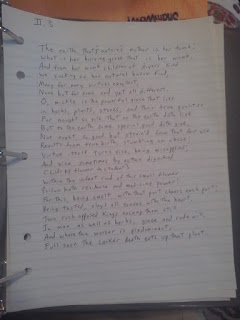 II. 3
The earth that's nature's mother is her tomb.
What is her burying grave that is her womb.
And from her womb children of divers kind
We sucking on her natural bosom find,
Many for many virtues excellent,
None but for some and yet all different.
O, mickle is the powerful grace that lies
in herbs, plants, stones, and their true qualities
For naught so vile that on the earth doth live
But to the earth some special good doth give,
Nor aught so good but strain'd from that fair use
Revolts from true birth, stumbling on abuse
Virtue itself turns vice, being misapplied,
And vice sometime by action dignified
Within the infant rind of this small flower
Poison hath residence and medicine power:
For this being smelt with that part cheers each part;
Being tasted, slays all senses with the heart.
Two such opposed kings encamp them still
In man as well as herbs, grace and rude will,
And where the worser is predominant,
Full soon the canker death eats up that plant.